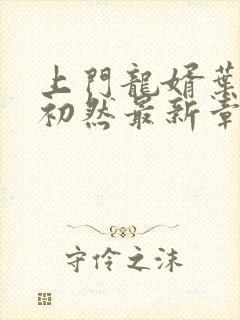 上門龍婿葉
初然最新章
守伶之沫